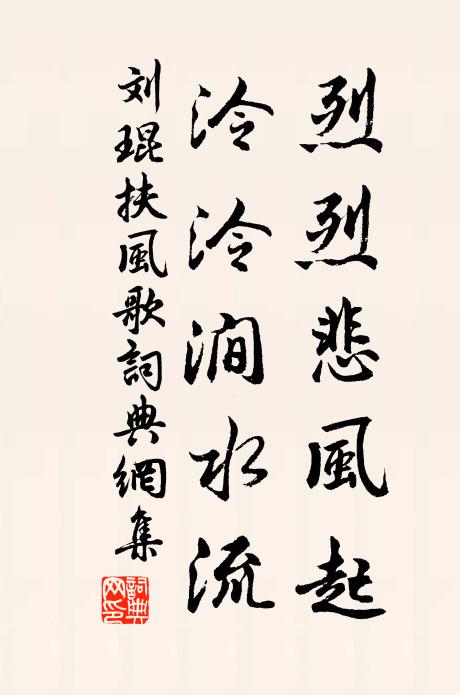 烈烈悲風起
泠泠澗水流
刘琨扶風歌詞典網集
詞典網印